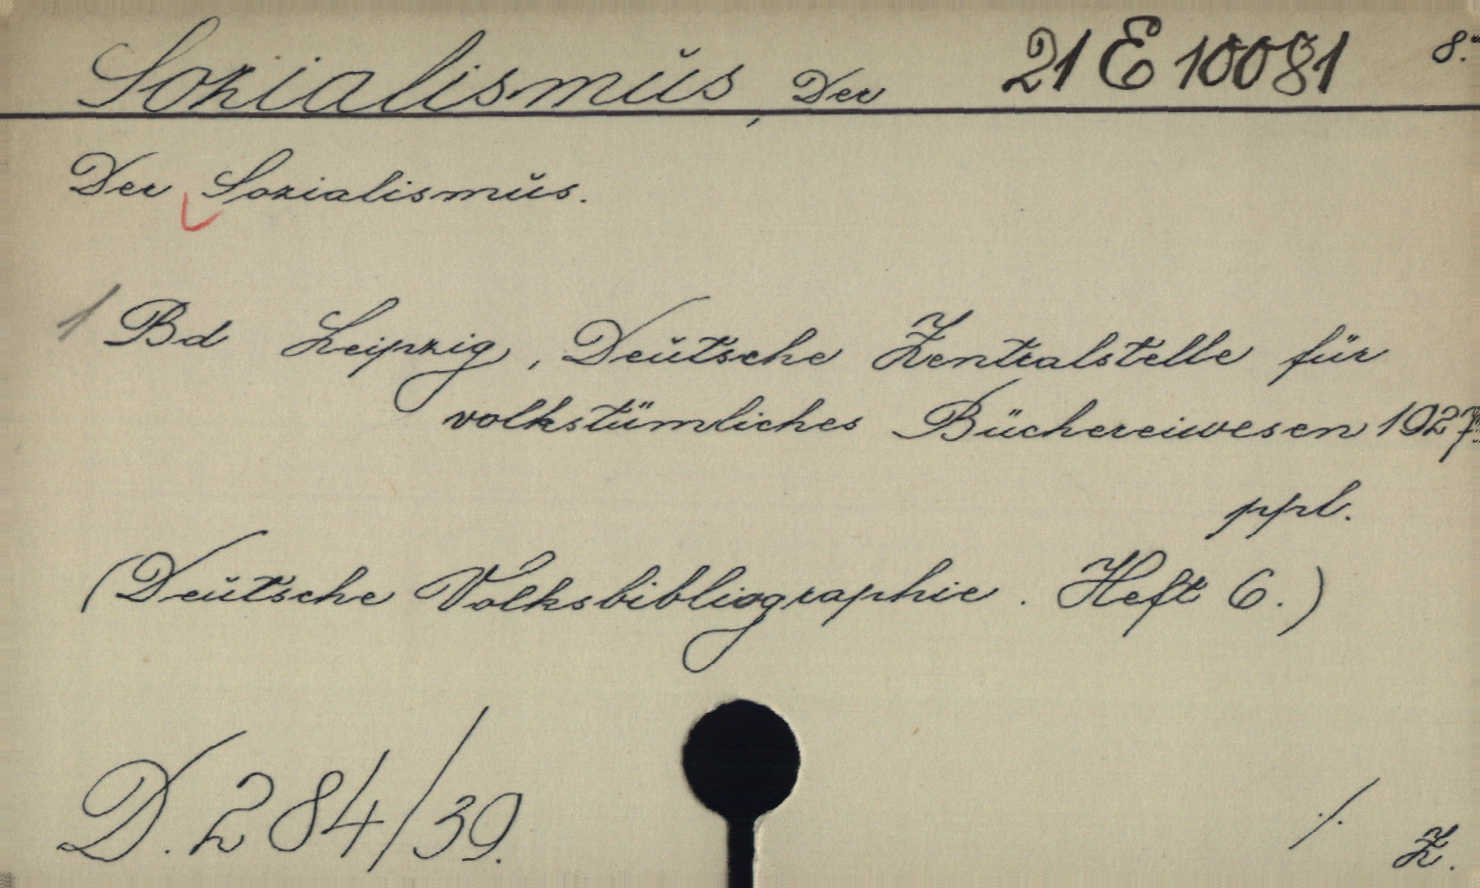 Sozialismus, Der 21 E 10081 8.°
Der Sozialismus.
1 Bd Leipzig, Deutsche Zentralstelle für
volkstümliches Büchereiwesen 1927
ppl.
(Deutsche Volksbibliographie. Heft 6.)
D. 284/39.
./. Z.